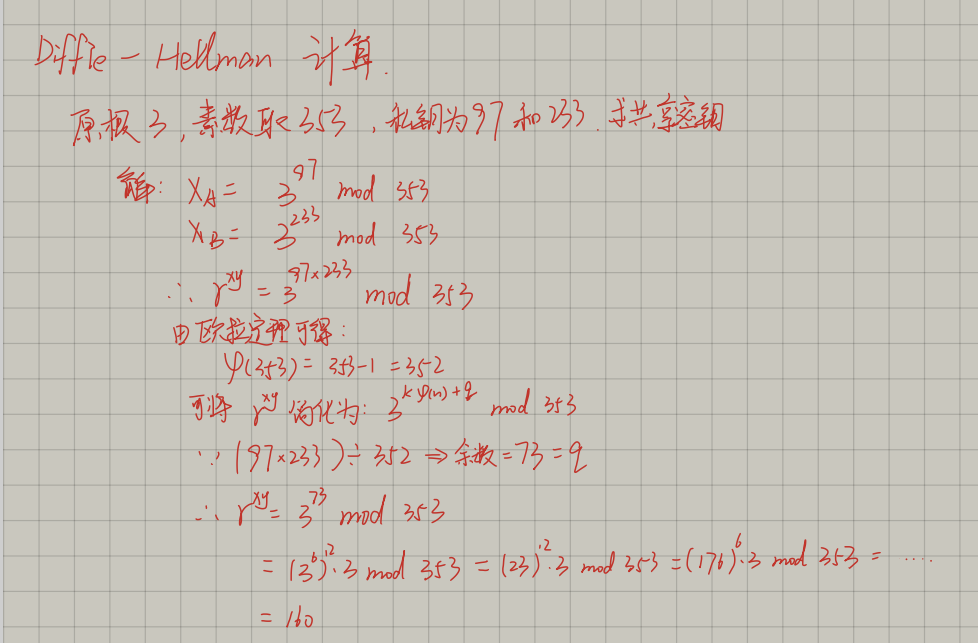 Diffie - Hellman 计算.
原根 3, 素数取 353, 私钥为 97 和 233. 求共享密钥
解: X_A = 3^97 mod 353
X_B = 3^233 mod 353
∴ r^xy = 3^97×233 mod 353
由欧拉定理可得:
φ(353) = 353-1 = 352
可将 r^xy 简化为: 3^kφ(n)+q mod 353
∵ (97×233) ÷ 352 ⇒ 余数 = 73 = q
∴ r^xy = 3^73 mod 353
= (3^6)^12 · 3 mod 353 = (23)^12 · 3 mod 353 = (176)^6 · 3 mod 353 = ......
= 160